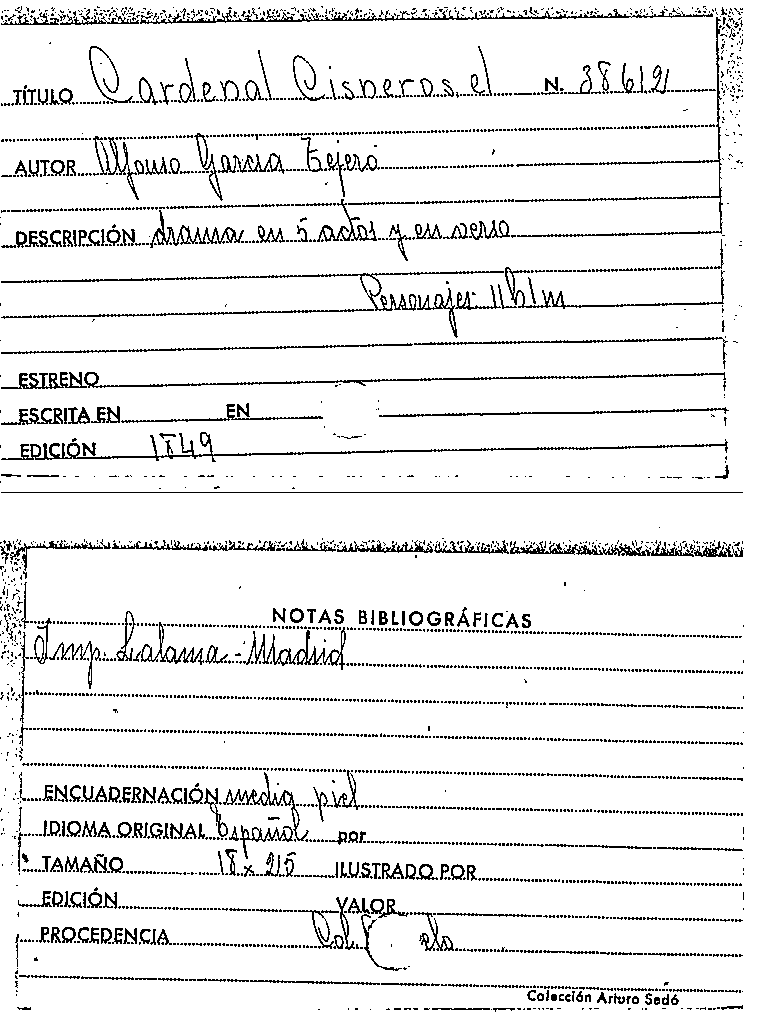 TÍTULO Cardenal Cisneros, el N. 386191
AUTOR Alfonso García Tejero
DESCRIPCIÓN drama en 5 actos y en verso
Personajes: 11 h 1 m
ESTRENO
ESCRITA EN EN
EDICIÓN 1849
NOTAS BIBLIOGRÁFICAS
Imp. Lalama - Madrid
ENCUADERNACIÓN media piel
IDIOMA ORIGINAL Español por
TAMAÑO 18 x 215 ILUSTRADO POR
EDICIÓN VALOR
PROCEDENCIA Col.
Colección Arturo Sedó